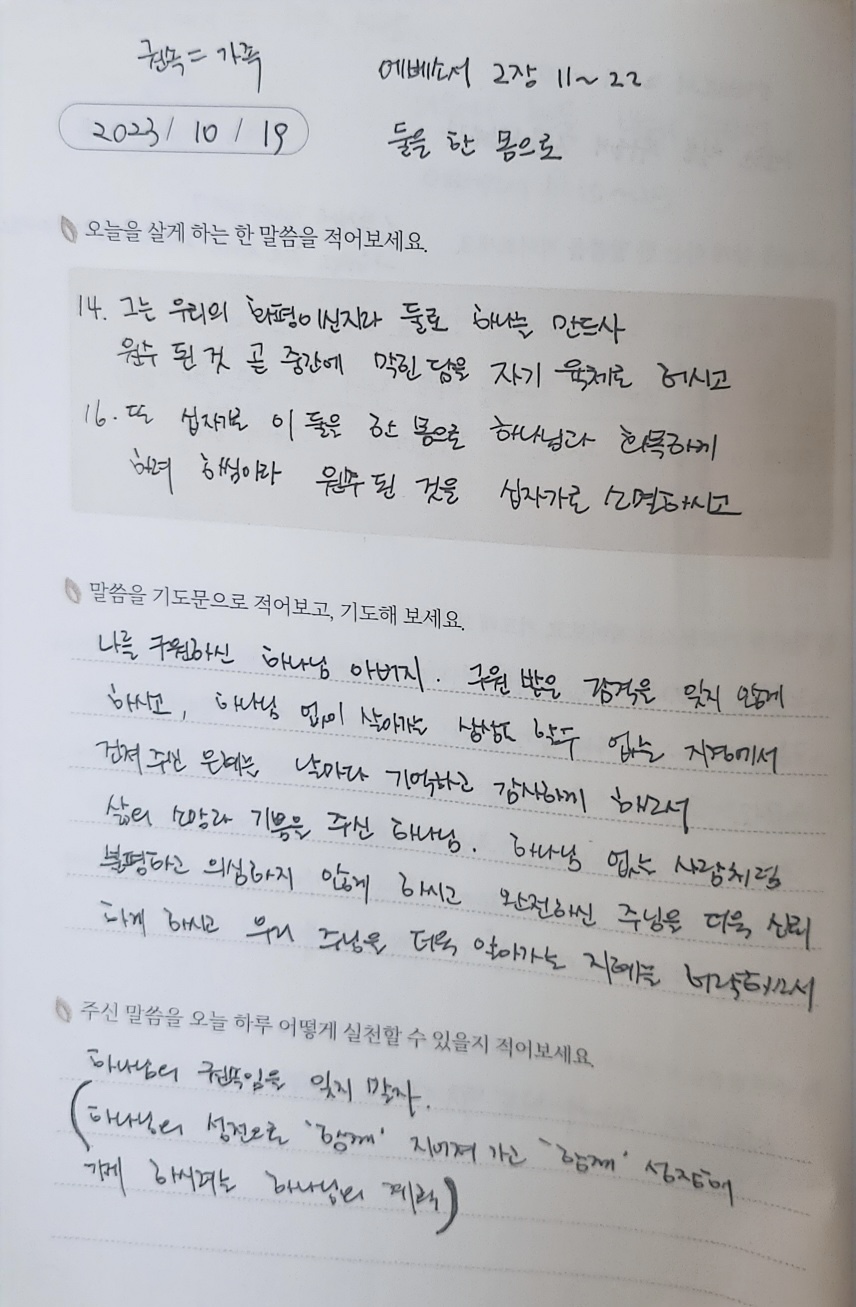 권속 = 가족
에베소서 2장 11~22
2023/ 10 / 19
둘을 한 몸으로
오늘을 살게 하는 한 말씀을 적어보세요.
14. 그는 우리의 화평이신지라 둘로 하나를 만드사
원수 된 것 곧 중간에 막힌 담을 자기 육체로 허시고
16. 또 십자가로 이 둘을 한 몸으로 하나님과 화목하게
하려 하심이라 원수 된 것을 십자가로 소멸하시고
말씀을 기도문으로 적어보고, 기도해 보세요.
나를 구원하신 하나님 아버지. 구원 받은 감격을 잊지 않게
하시고, 하나님 없이 살아가는 상상도 할수 없는 지경에서
건져 주신 은혜를 날마다 기억하고 감사하게 하소서
삶의 소망과 기쁨을 주신 하나님. 하나님 없는 사람처럼
불평하고 의심하지 않게 하시고 완전하신 주님을 더욱 신뢰
하게 하시고 우리 주님을 더욱 알아가는 지혜를 허락하소서
주신 말씀을 오늘 하루 어떻게 실천할 수 있을지 적어보세요.
하나님의 권속임을 잊지 말자.
(하나님의 성전으로 '함께' 지어져 가고 '함께' 성장해
가게 하시려는 하나님의 계획)